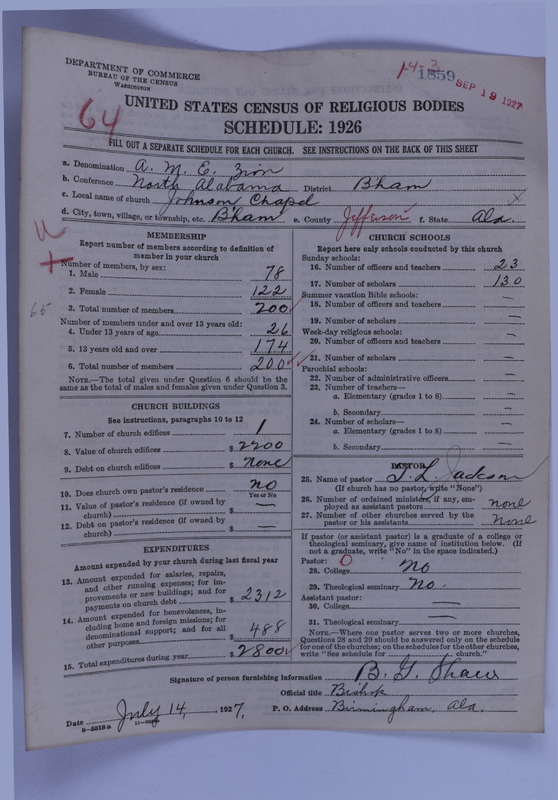 DEPARTMENT OF COMMERCE
BUREAU OF THE CENSUS
WASHINGTON
14-3
1359
SEP 19 1927
64
UNITED STATES CENSUS OF RELIGIOUS BODIES
SCHEDULE: 1926
FILL OUT A SEPARATE SCHEDULE FOR EACH CHURCH. SEE INSTRUCTIONS ON THE BACK OF THIS SHEET
a. Denomination A. M. E. Zion
b. Conference North Alabama District Bham
c. Local name of church Johnson Chapel
d. City, town, village, or township, etc. Bham e. County Jefferson f. State Ala.
MEMBERSHIP
Report number of members according to definition of
member in your church
Number of members, by sex:
1. Male 78
2. Female 122
3. Total number of members 200
65
Number of members under and over 13 years old:
4. Under 13 years of age 26
5. 13 years old and over 174
6. Total number of members 200
NOTE.—The total given under Question 6 should be the
same as the total of males and females given under Question 3.
CHURCH BUILDINGS
See instructions, paragraphs 10 to 12
7. Number of church edifices 1
8. Value of church edifices $ 2200
9. Debt on church edifices $ None
10. Does church own pastor's residence no
Yes or No
11. Value of pastor's residence (if owned by
church) $ —
12. Debt on pastor's residence (if owned by
church) $ —
EXPENDITURES
Amount expended by your church during last fiscal year
13. Amount expended for salaries, repairs,
and other running expenses; for im-
provements or new buildings; and for
payments on church debt $ 2312
14. Amount expended for benevolences, in-
cluding home and foreign missions; for
denominational support; and for all
other purposes $ 488
15. Total expenditures during year $ 2800
CHURCH SCHOOLS
Report here only schools conducted by this church
Sunday schools:
16. Number of officers and teachers 23
17. Number of scholars 130
Summer vacation Bible schools:
18. Number of officers and teachers —
19. Number of scholars —
Week-day religious schools:
20. Number of officers and teachers —
21. Number of scholars —
Parochial schools:
22. Number of administrative officers —
23. Number of teachers—
a. Elementary (grades 1 to 8) —
b. Secondary —
24. Number of scholars—
a. Elementary (grades 1 to 8) —
b. Secondary —
PASTOR
25. Name of pastor J. L. Jackson
(If church has no pastor, write "None")
26. Number of ordained ministers, if any, em-
ployed as assistant pastors none
27. Number of other churches served by the
pastor or his assistants None
If pastor (or assistant pastor) is a graduate of a college or
theological seminary, give name of institution below. (If
not a graduate, write "No" in the space indicated.)
Pastor: O
28. College No
29. Theological seminary No.
Assistant pastor:
30. College —
31. Theological seminary —
NOTE.—Where one pastor serves two or more churches,
Questions 28 and 29 should be answered only on the schedule
for one of the churches; on the schedules for the other churches,
write "See schedule for church."
Signature of person furnishing information B. G. Shaw
Official title Bishop
Date July 14, 1927. P. O. Address Birmingham, Ala.